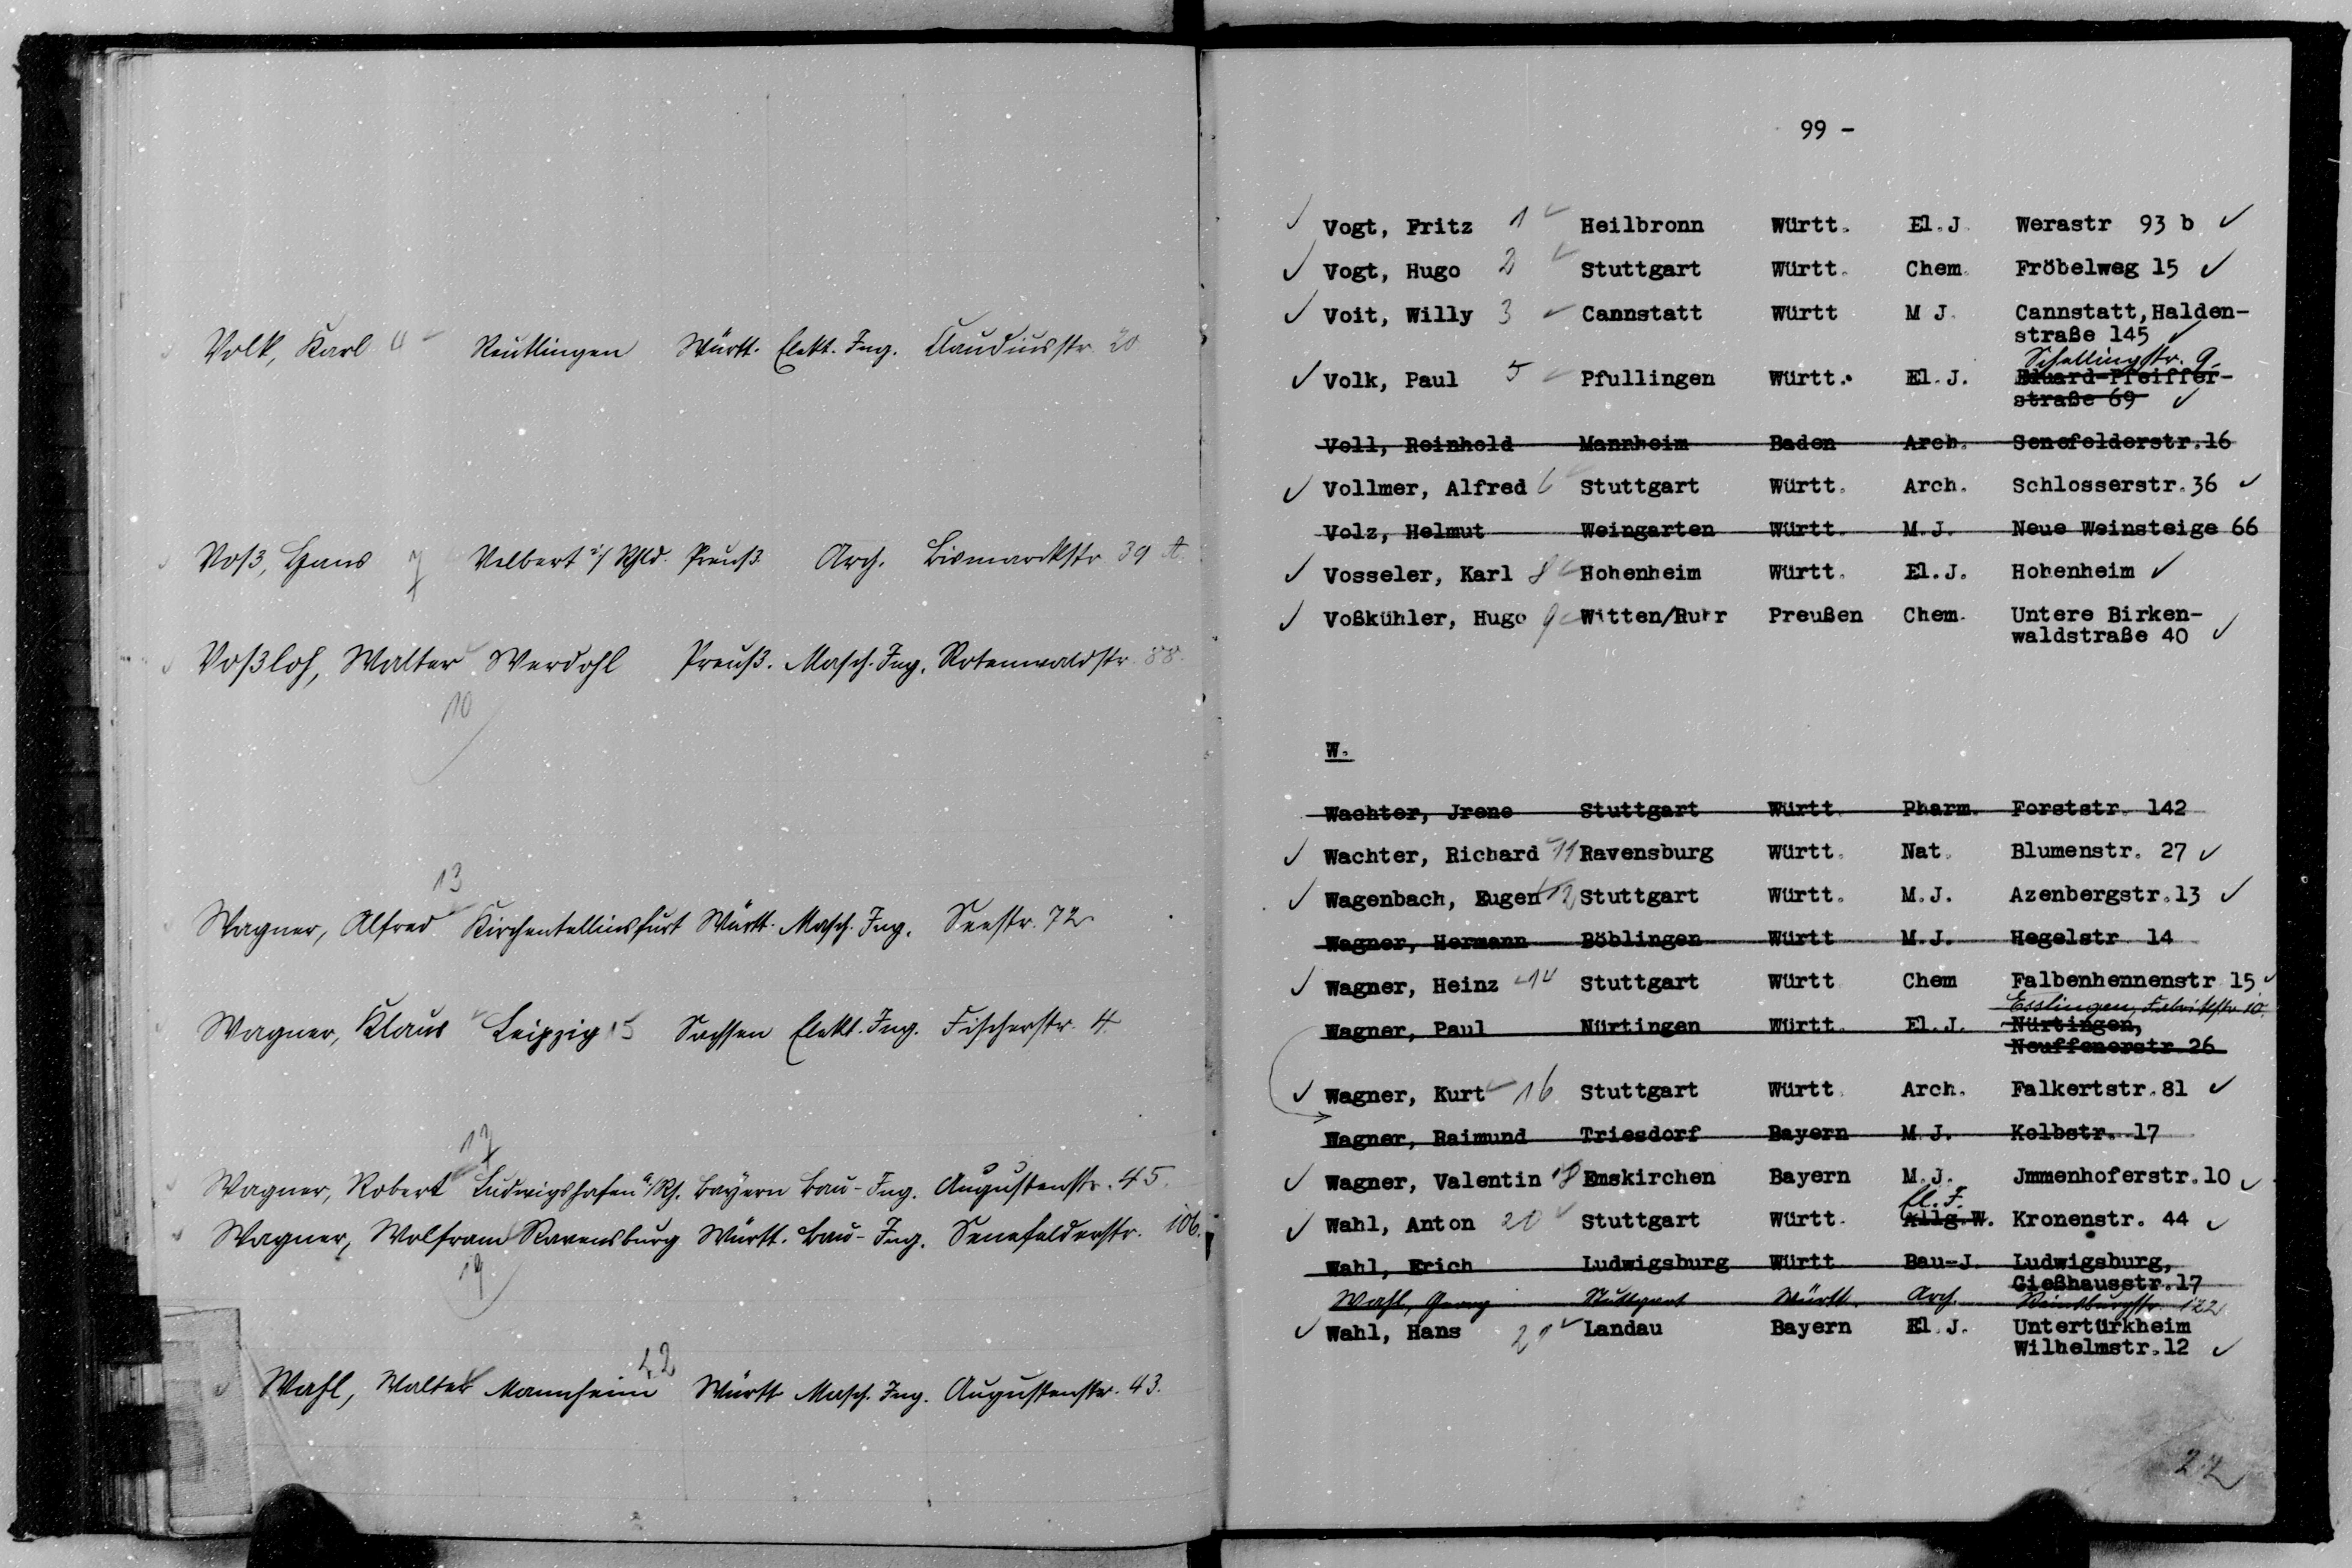 Volk, Karl 4 Reutlingen Württ. Elekt. Ing. Claudiusstr. 20
Voß, Hans 7 Velbert i/ Rhld. Preuß. Arch. Bismarckstr 39 A.
Voßloh, Walter Werdohl Preuß. Masch. Ing. Rotenwaldstr. 88.
10
13
Wagner, Alfred Kirchentellinsfurt Württ. Masch. Ing. Seestr. 72
Wagner, Klaus Leipzig 15 Sachsen Elekt. Ing. Fischerstr. 4
17
Wagner, Robert Ludwigshafen a/Rh. Bayern Bau-Ing. Augustenstr. 45.
Wagner, Wolfram Ravensburg Württ. Bau-Ing. Senefelderstr. 106.
19
Wahl, Walter Mannheim Württ Masch. Ing. Augustenstr. 43.
99 -
✓ Vogt, Fritz 1 ✓ Heilbronn Württ. El.J. Werastr 93 b ✓
✓ Vogt, Hugo 2 ✓ Stuttgart Württ. Chem. Fröbelweg 15 ✓
✓ Voit, Willy 3 ✓ Cannstatt Württ M J. Cannstatt, Halden-
straße 145 ✓
Schellingstr. 9
✓ Volk, Paul 5 ✓ Pfullingen Württ. El.J. Eduard-Pfeiffer-
straße 69 ✓
Voll, Reinhold Mannheim Baden Arch. Senefelderstr.16
✓ Vollmer, Alfred 6 ✓ Stuttgart Württ. Arch. Schlosserstr.36 ✓
Volz, Helmut Weingarten Württ. M.J. Neue Weinsteige 66
✓ Vosseler, Karl 8 ✓ Hohenheim Württ. El.J. Hohenheim ✓
✓ Voßkühler, Hugo 9 ✓ Witten/Ruhr Preußen Chem. Untere Birken-
waldstraße 40 ✓
W.
Wachter, Jrene Stuttgart Württ. Pharm. Forststr. 142
✓ Wachter, Richard ✓ 11 Ravensburg Württ. Nat. Blumenstr. 27 ✓
✓ Wagenbach, Eugen ✓ 12 Stuttgart Württ. M.J. Azenbergstr.13 ✓
Wagner, Hermann Böblingen Württ M.J. Hegelstr 14
✓ Wagner, Heinz ✓ 14 Stuttgart Württ Chem Falbenhennenstr 15 ✓
Esslingen, Fabrikstr. 10.
Wagner, Paul Nürtingen Württ. El.J. Nürtingen,
Neuffenerstr 26
✓ Wagner, Kurt ✓ 16 Stuttgart Württ. Arch. Falkertstr.81 ✓
Wagner, Raimund Triesdorf Bayern M J. Kolbstr. 17
✓ Wagner, Valentin 18 Emskirchen Bayern M.J. Jmmenhoferstr.10 ✓
El. J.
✓ Wahl, Anton 20 ✓ Stuttgart Württ. Allg.W. Kronenstr. 44 ✓
Wahl, Erich Ludwigsburg Württ Bau-J. Ludwigsburg,
Gießhausstr.17
Wahl, Georg Stuttgart Württ. Arch. Reinsburgstr. 122
✓ Wahl, Hans 21 ✓ Landau Bayern El.J. Untertürkheim
Wilhelmstr.12 ✓
22